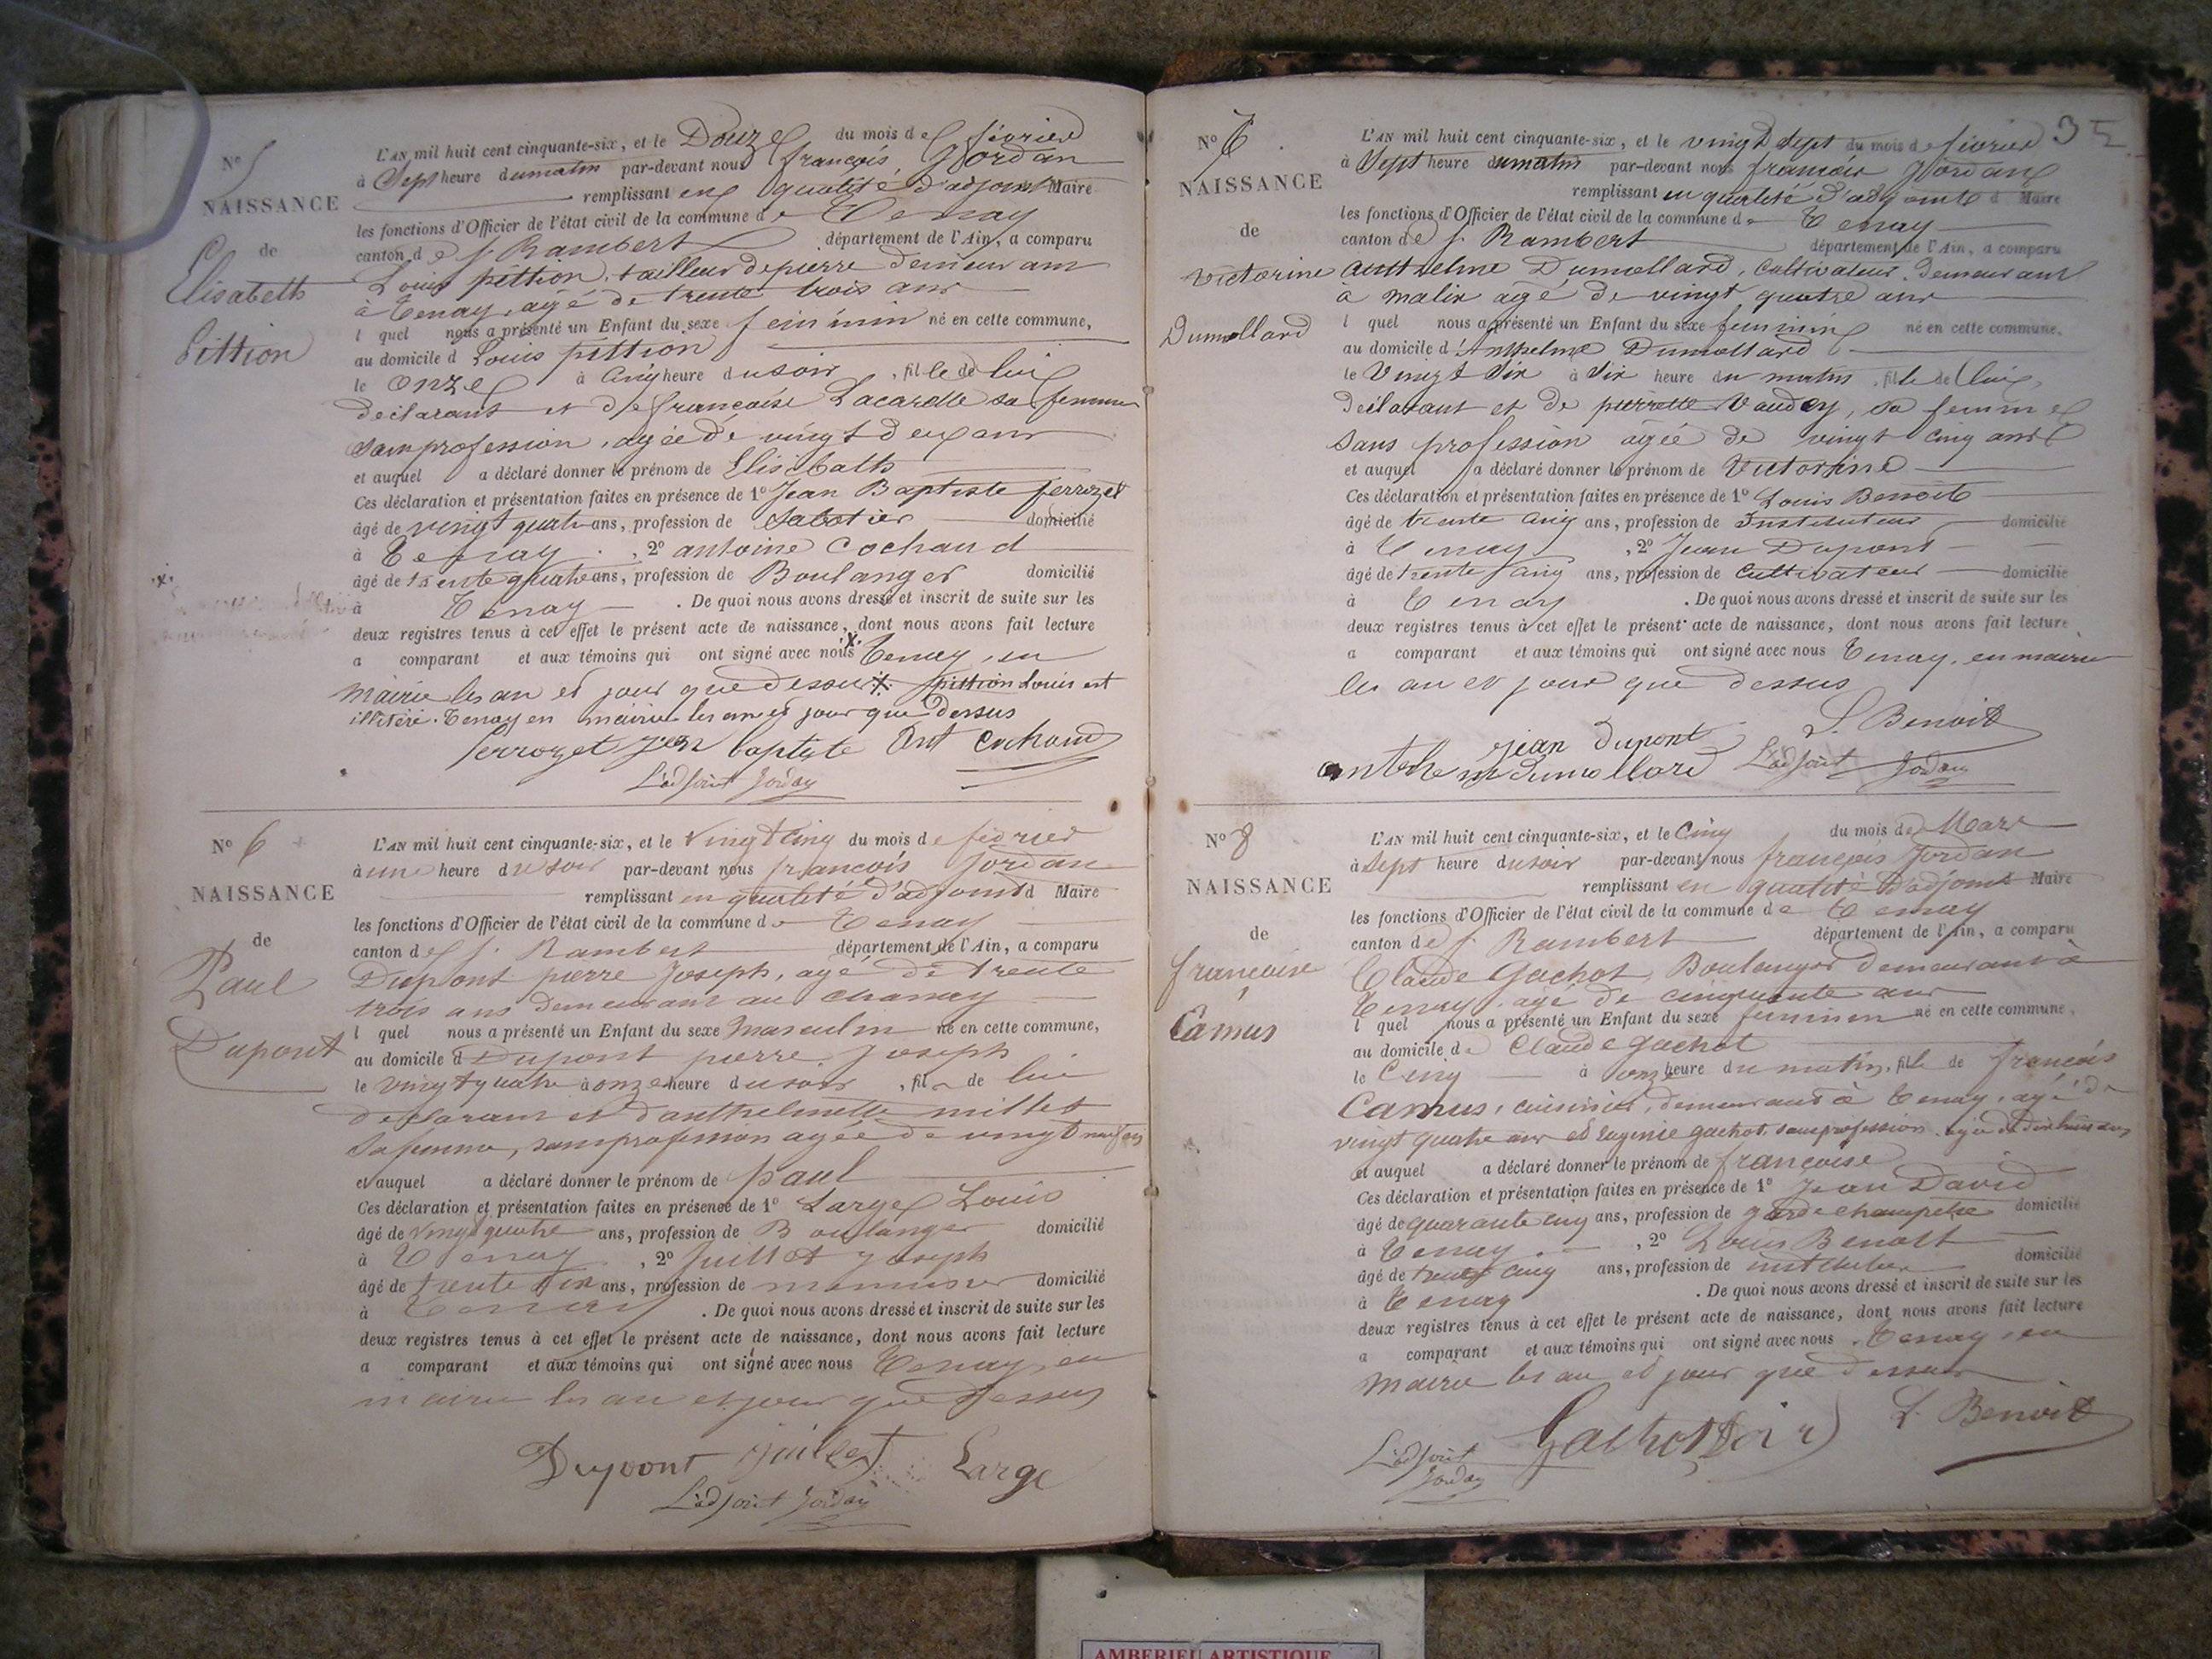 N° 5
NAISSANCE
de
Elisabeth
Pittion
L'AN mil huit cent cinquante-six, et le Douze du mois de février
à Sept heure du matin par-devant nous françois Jordan
remplissant en qualité d'adjoint Maire
les fonctions d'Officier de l'état civil de la commune de Tenay
canton de St Rambert département de l'Ain, a comparu
Louis pittion, tailleur de pierre demeurant
à Tenay, agé de trente trois ans
l quel nous a présenté un Enfant du sexe feminin né en cette commune,
au domicile d Louis pittion
le onze à cinq heure du soir, fille de lui
declarant et de françoise Lacarelle sa femme
sans profession, agée de vingt deux ans
et auquel a déclaré donner le prénom de Elisabath
Ces déclaration et présentation faites en présence de 1° Jean Baptiste ferrozet
âgé de vingt quatre ans, profession de Sabotier domicilié
à Tenay, 2° antoine Cochaud
âgé de trente quatre ans, profession de Boulanger domicilié
à Tenay. De quoi nous avons dressé et inscrit de suite sur les
deux registres tenus à cet effet le présent acte de naissance, dont nous avons fait lecture
a comparant et aux témoins qui ont signé avec nous x. Tenay, en
mairie les an et jour que dessus x. pittion Louis est
illitéré. Tenay en mairie les an et jour que dessus
ferrozet jean baptiste Ant cochaud
L'adjoint Jordan
N° 6
NAISSANCE
de
Paul
Dupont
L'AN mil huit cent cinquante-six, et le vingt cinq du mois de février
à une heure du soir par-devant nous françois Jordan
remplissant en qualité d'adjoint d Maire
les fonctions d'Officier de l'état civil de la commune de Tenay
canton de St Rambert département de l'Ain, a comparu
Dupont pierre Joseph, agé de trente
trois ans demeurant au chanay
l quel nous a présenté un Enfant du sexe masculin né en cette commune,
au domicile d Dupont pierre Joseph
le vingt quatre à onze heure du soir, fil de lui
declarant et d'anthelmette millet
sa femme, sans profession agée de vingt neuf ans
et auquel a déclaré donner le prénom de paul
Ces déclaration et présentation faites en présence de 1° Large Louis
âgé de vingt quatre ans, profession de Boulanger domicilié
à Tenay, 2° Juillet Joseph
âgé de trente six ans, profession de menuisier domicilié
à Tenay. De quoi nous avons dressé et inscrit de suite sur les
deux registres tenus à cet effet le présent acte de naissance, dont nous avons fait lecture
a comparant et aux témoins qui ont signé avec nous Tenay, en
mairie les an et jour que dessus
Dupont juillet Large
L'adjoint Jordan
35
N° 7
NAISSANCE
de
victorine
Dumollard
L'AN mil huit cent cinquante-six, et le vingt sept du mois de février
à Sept heure du matin par-devant nous françois Jordan
remplissant en qualité d'adjoint d Maire
les fonctions d'Officier de l'état civil de la commune de Tenay
canton de St Rambert département de l'Ain, a comparu
Anthelme Dumollard, cultivateur, demeurant
à malix agé de vingt quatre ans
l quel nous a présenté un Enfant du sexe feminin né en cette commune,
au domicile d'Anthelme Dumollard
le Vingt Six à Six heure du matin, fille de lui,
declarant et de pierrette Vaudey, sa femme
sans profession agée de vingt cinq ans
et auquel a déclaré donner le prénom de Victorine
Ces déclaration et présentation faites en présence de 1° Louis Benoit
âgé de trente cinq ans, profession de Instituteur domicilié
à Tenay, 2° Jean Dupont
âgé de trente cinq ans, profession de cultivateur domicilié
à Tenay. De quoi nous avons dressé et inscrit de suite sur les
deux registres tenus à cet effet le présent acte de naissance, dont nous avons fait lecture
a comparant et aux témoins qui ont signé avec nous Tenay, en mairie
les an et jour que dessus
L. Benoit
jean dupont
anthelme dumollard L'adjoint Jordan
N° 8
NAISSANCE
de
françoise
Camus
L'AN mil huit cent cinquante-six, et le Cinq du mois de Mars
à Sept heure du soir par-devant nous françois Jordan
remplissant en qualité d'adjoint Maire
les fonctions d'Officier de l'état civil de la commune de Tenay
canton de St Rambert département de l'Ain, a comparu
Claude Gachot, Boulanger demeurant à
Tenay, agé de cinquante ans
l quel nous a présenté un Enfant du sexe feminin né en cette commune,
au domicile de Claude gachot
le Cinq à onze heure du matin, fille de françois
Camus, cuisinier, demeurant à Tenay, agé de
vingt quatre ans et Eugenie gachot, sans profession, agée de dix huit ans
et auquel a déclaré donner le prénom de françoise
Ces déclaration et présentation faites en présence de 1° Jean David
âgé de quarante cinq ans, profession de garde champetre domicilié
à Tenay, 2° Louis Benoit
âgé de trente cinq ans, profession de instituteur domicilié
à Tenay. De quoi nous avons dressé et inscrit de suite sur les
deux registres tenus à cet effet le présent acte de naissance, dont nous avons fait lecture
a comparant et aux témoins qui ont signé avec nous. Tenay, en
mairie les an et jour que dessus
L. Benoit
L'adjoint Gachot
Jordan
AMBERIEU ARTISTIQUE